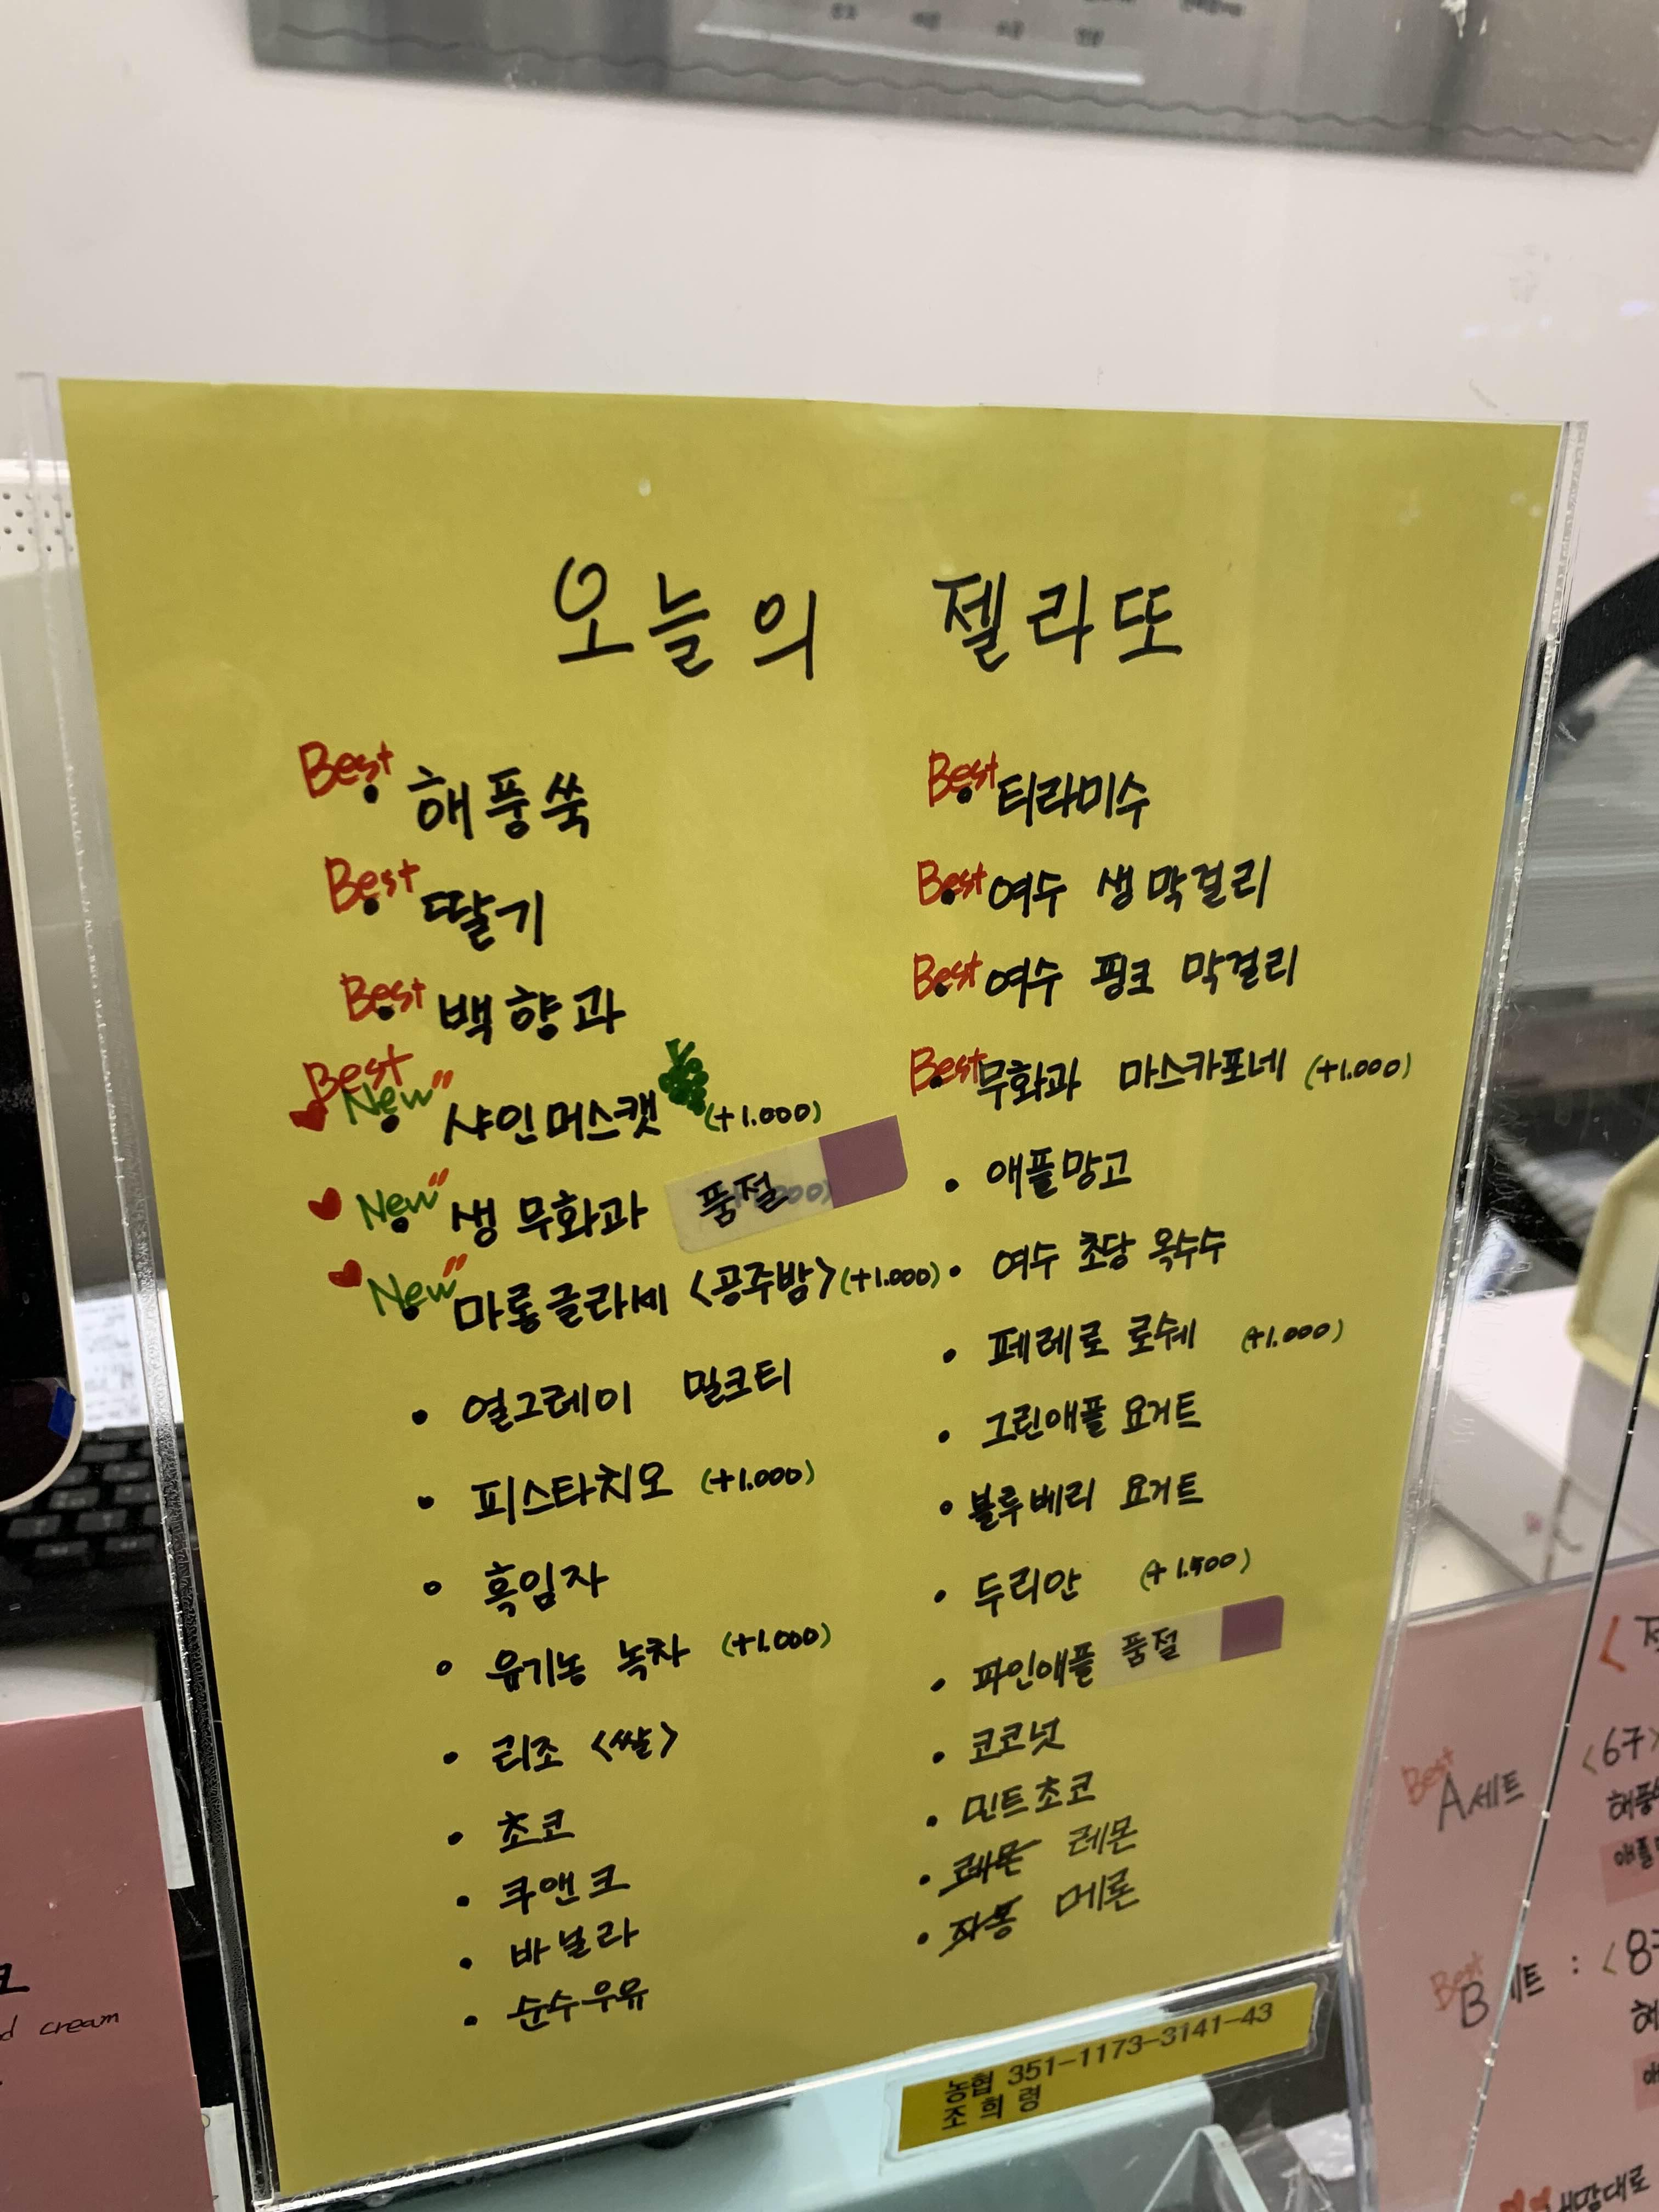 오늘의 젤라또
Best 해풍쑥
Best 딸기
Best 백향과
Best New 샤인머스캣 (+1.000)
New 생 무화과 품절
New 마롱글라세 <공주밤> (+1.000)
얼그레이 밀크티
피스타치오 (+1.000)
흑임자
유기농 녹차 (+1.000)
리조 <쌀>
초코
쿠앤크
바닐라
순수우유
Best 티라미수
Best 여수 생막걸리
Best 여수 핑크 막걸리
Best 무화과 마스카포네 (+1.000)
애플망고
여수 초당 옥수수
페레로 로쉐 (+1.000)
그린애플 요거트
블루베리 요거트
두리안 (+1.500)
파인애플 품절
코코넛
민트초코
레몬
자몽 메론
농협 351-1173-3141-43
조희령
cream
Best
A세트
<6구>
Best
B세트 : <8구